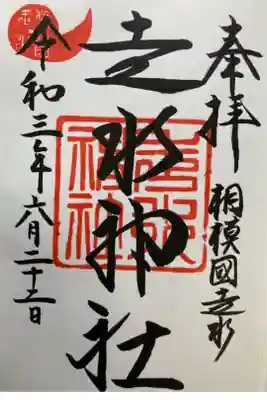 奉拝
相模國走水
走水神社
走水
神社
令和三年六月二十二日